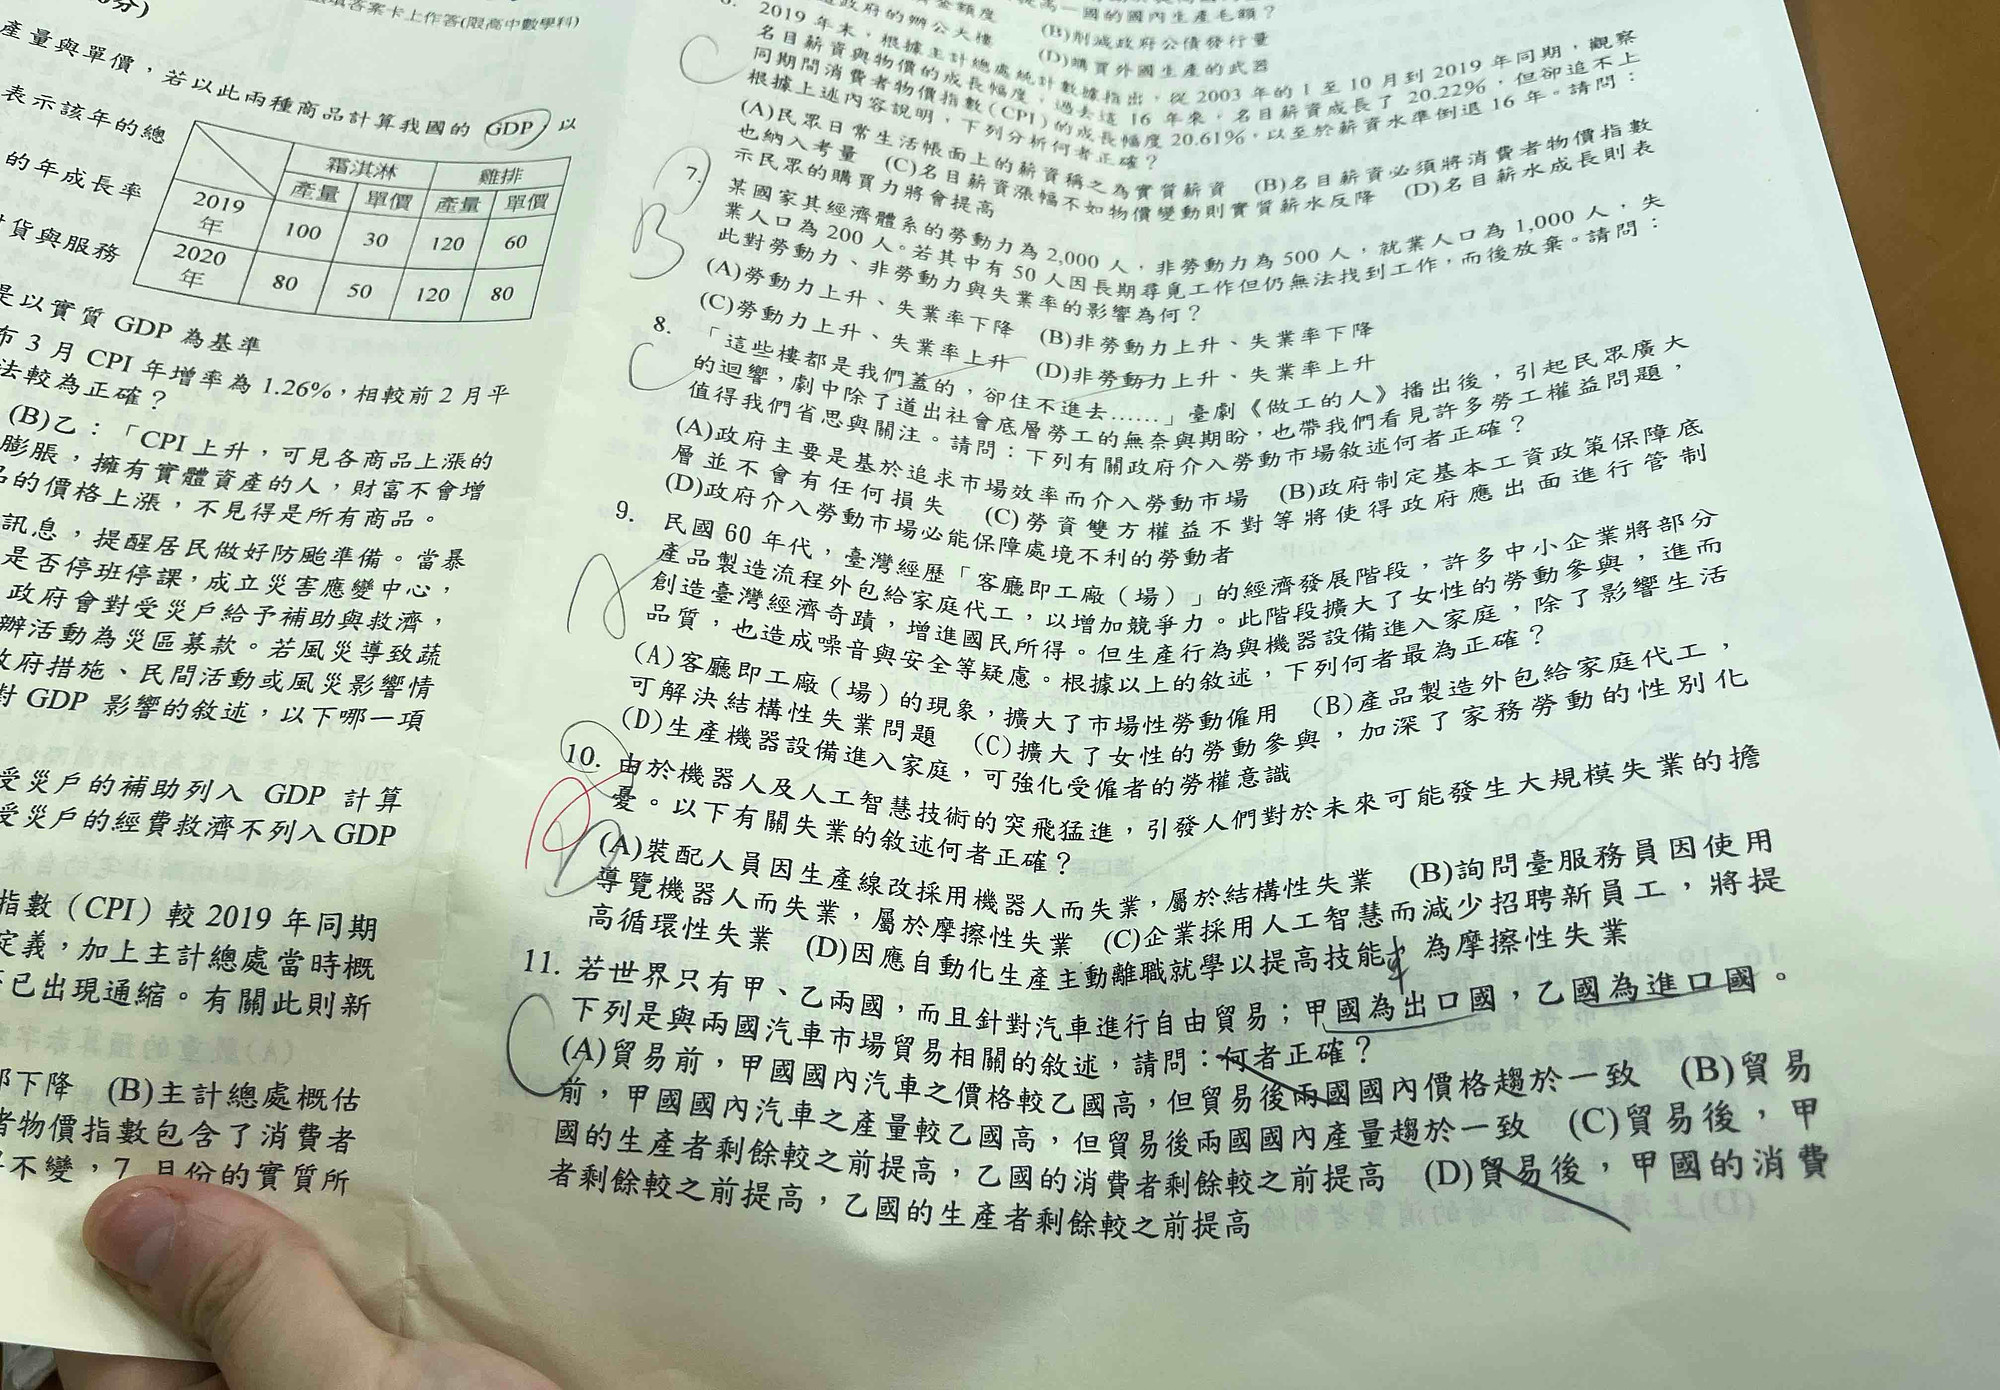 填答案卡上作答(限高中數學科)
產量與單價，若以此兩種商品計算我國的 GDP，以
表示該年的總
的年成長率
貨與服務
霜淇淋 雞排
產量 單價 產量 單價
2019年 100 30 120 60
2020年 80 50 120 80
是以實質 GDP 為基準
布 3 月 CPI 年增率為 1.26%，相較前 2 月平
法較為正確？
(B)乙：「CPI 上升，可見各商品上漲的
膨脹，擁有實體資產的人，財富不會增
的價格上漲，不見得是所有商品。
訊息，提醒居民做好防颱準備。當暴
是否停班停課，成立災害應變中心，
政府會對受災戶給予補助與救濟，
辦活動為災區募款。若風災導致蔬
政府措施、民間活動或風災影響情
對 GDP 影響的敘述，以下哪一項
受災戶的補助列入 GDP 計算
受災戶的經費救濟不列入 GDP
指數（CPI）較 2019 年同期
定義，加上主計總處當時概
已出現通縮。有關此則新
下降 (B)主計總處概估
者物價指數包含了消費者
不變，7 月份的實質所
政府的辦公大樓 (B)削減政府公債發行量
(D)購買外國生產的武器
C
2019 年末，根據主計總處統計數據指出，從 2003 年的 1 至 10 月到 2019 年同期，觀察
名目薪資與物價的成長幅度，過去這 16 年來，名目薪資成長了 20.22%，但卻追不上
同期間消費者物價指數(CPI)的成長幅度 20.61%，以至於薪資水準倒退 16 年。請問：
根據上述內容說明，下列分析何者正確？
(A)民眾日常生活帳面上的薪資稱之為實質薪資 (B)名目薪資必須將消費者物價指數
也納入考量 (C)名目薪資漲幅不如物價變動則實質薪水反降 (D)名目薪水成長則表
示民眾的購買力將會提高
B
7. 某國家其經濟體系的勞動力為 2,000 人，非勞動力為 500 人，就業人口為 1,000 人，失
業人口為 200 人。若其中有 50 人因長期尋覓工作但仍無法找到工作，而後放棄。請問：
此對勞動力、非勞動力與失業率的影響為何？
(A)勞動力上升、失業率下降 (B)非勞動力上升、失業率下降
(C)勞動力上升、失業率上升 (D)非勞動力上升、失業率上升
C
8. 「這些樓都是我們蓋的，卻住不進去……」臺劇《做工的人》播出後，引起民眾廣大
的迴響，劇中除了道出社會底層勞工的無奈與期盼，也帶我們看見許多勞工權益問題，
值得我們省思與關注。請問：下列有關政府介入勞動市場敘述何者正確？
(A)政府主要是基於追求市場效率而介入勞動市場 (B)政府制定基本工資政策保障底
層並不會有任何損失 (C)勞資雙方權益不對等將使得政府應出面進行管制
(D)政府介入勞動市場必能保障處境不利的勞動者
A
9. 民國 60 年代，臺灣經歷「客廳即工廠（場）」的經濟發展階段，許多中小企業將部分
產品製造流程外包給家庭代工，以增加競爭力。此階段擴大了女性的勞動參與，進而
創造臺灣經濟奇蹟，增進國民所得。但生產行為與機器設備進入家庭，除了影響生活
品質，也造成噪音與安全等疑慮。根據以上的敘述，下列何者最為正確？
(A)客廳即工廠（場）的現象，擴大了市場性勞動僱用 (B)產品製造外包給家庭代工，
可解決結構性失業問題 (C)擴大了女性的勞動參與，加深了家務勞動的性別化
(D)生產機器設備進入家庭，可強化受僱者的勞權意識
A
D
10. 由於機器人及人工智慧技術的突飛猛進，引發人們對於未來可能發生大規模失業的擔
憂。以下有關失業的敘述何者正確？
(A)裝配人員因生產線改採用機器人而失業，屬於結構性失業 (B)詢問臺服務員因使用
導覽機器人而失業，屬於摩擦性失業 (C)企業採用人工智慧而減少招聘新員工，將提
高循環性失業 (D)因應自動化生產主動離職就學以提高技能，為摩擦性失業
C
11. 若世界只有甲、乙兩國，而且針對汽車進行自由貿易；甲國為出口國，乙國為進口國。
下列是與兩國汽車市場貿易相關的敘述，請問：何者正確？
(A)貿易前，甲國國內汽車之價格較乙國高，但貿易後兩國國內價格趨於一致 (B)貿易
前，甲國國內汽車之產量較乙國高，但貿易後兩國國內產量趨於一致 (C)貿易後，甲
國的生產者剩餘較之前提高，乙國的消費者剩餘較之前提高 (D)貿易後，甲國的消費
者剩餘較之前提高，乙國的生產者剩餘較之前提高